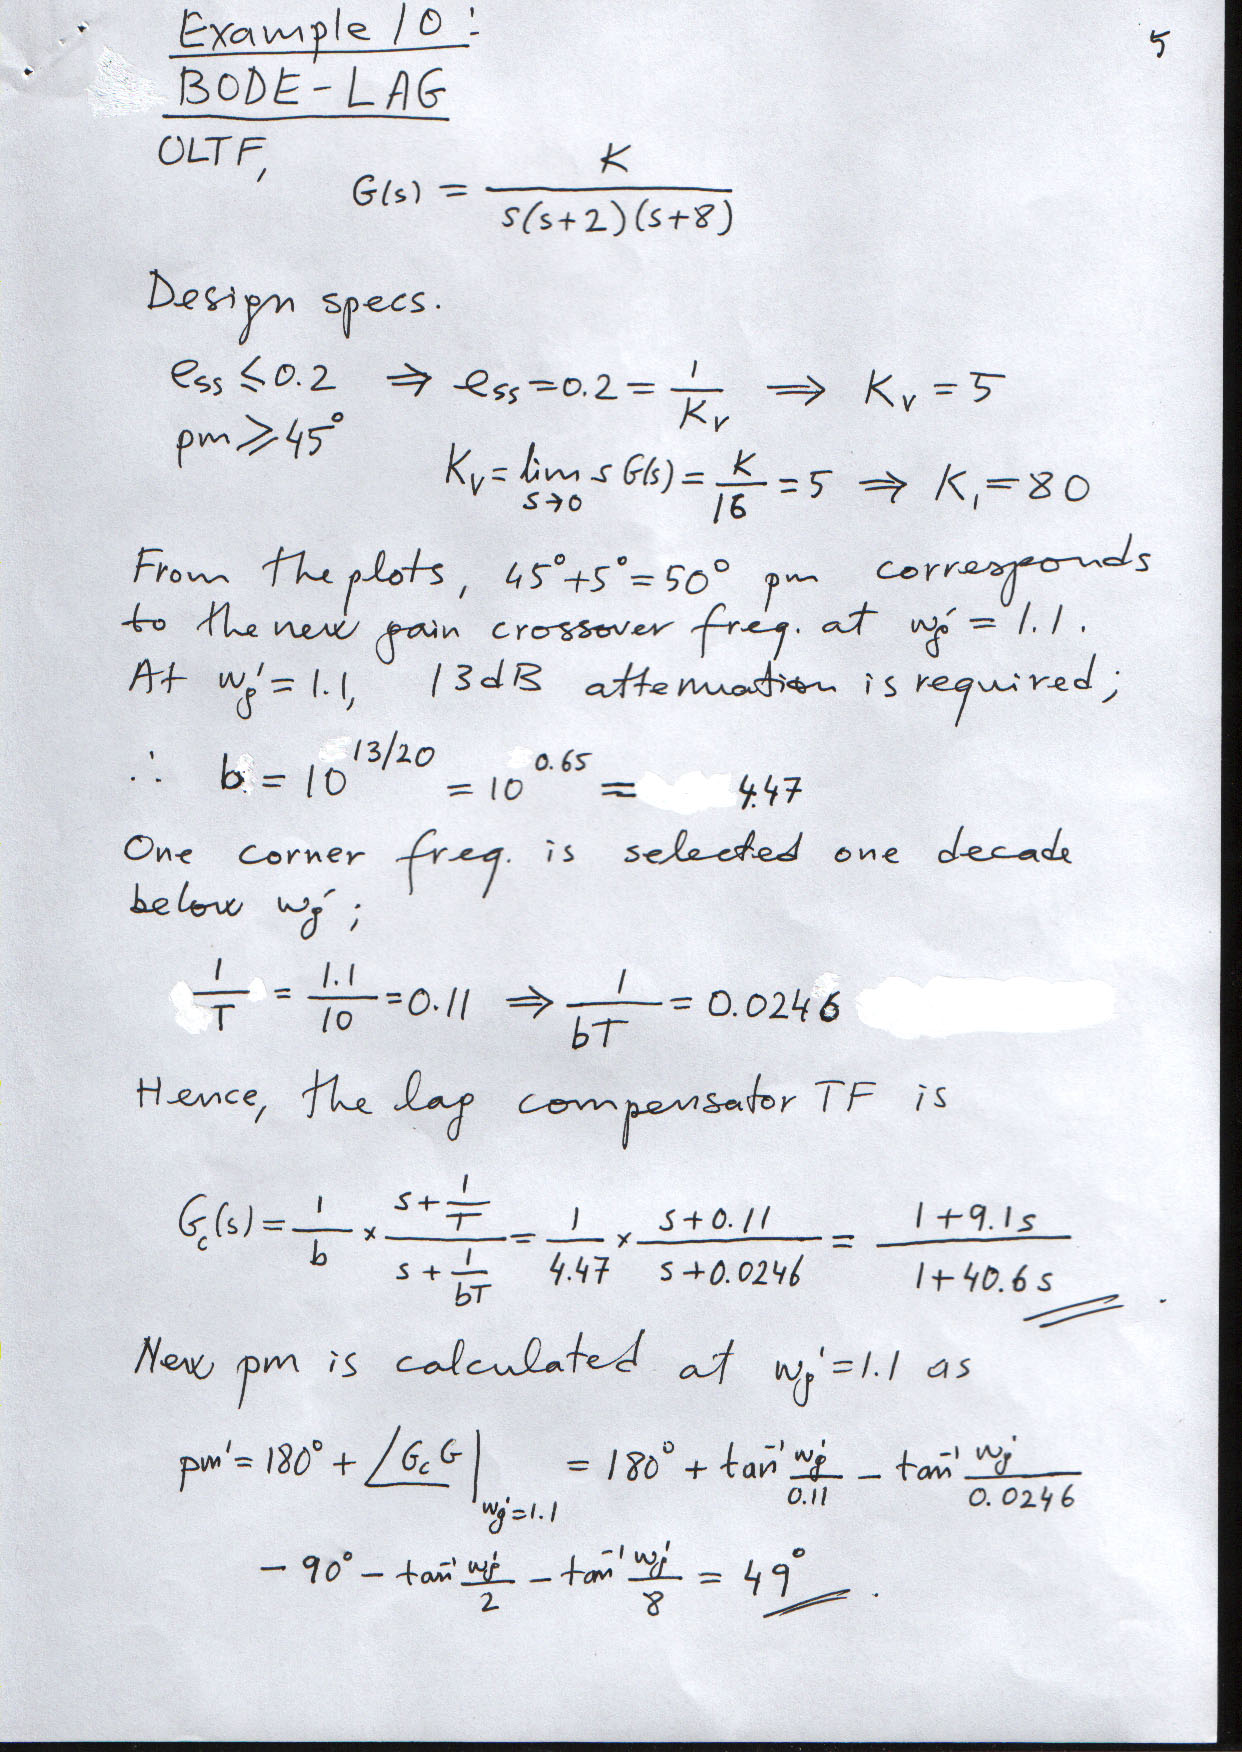 5
Example 10:
BODE-LAG
OLTF,
G(s) = K / s(s+2)(s+8)
Design specs.
ess ≤ 0.2 ⇒ ess = 0.2 = 1/Kv ⇒ Kv = 5
pm ≥ 45°
Kv = lim s→0 s G(s) = K/16 = 5 ⇒ K1 = 80
From the plots, 45°+5° = 50° pm corresponds
to the new gain crossover freq. at wg' = 1.1.
At wg' = 1.1, 13dB attenuation is required;
∴ b = 10^13/20 = 10^0.65 = 4.47
One corner freq. is selected one decade
below wg';
1/T = 1.1/10 = 0.11 ⇒ 1/bT = 0.0246
Hence, the lag compensator TF is
Gc(s) = 1/b × (s + 1/T)/(s + 1/bT) = 1/4.47 × (s+0.11)/(s+0.0246) = (1+9.1s)/(1+40.6s).
New pm is calculated at wg' = 1.1 as
pm' = 180° + ∠GcG | wg'=1.1 = 180° + tan⁻¹ wg'/0.11 − tan⁻¹ wg'/0.0246
− 90° − tan⁻¹ wg'/2 − tan⁻¹ wg'/8 = 49°.